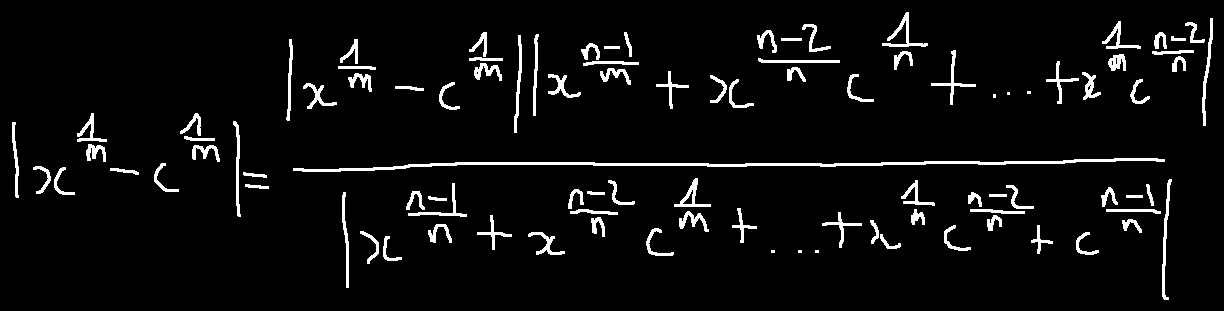 |x^{\frac{1}{n}} - c^{\frac{1}{n}}| = \frac{|x^{\frac{1}{n}} - c^{\frac{1}{n}}||x^{\frac{n-1}{n}} + x^{\frac{n-2}{n}} c^{\frac{1}{n}} + ... + x^{\frac{1}{n}} c^{\frac{n-2}{n}}|}{|x^{\frac{n-1}{n}} + x^{\frac{n-2}{n}} c^{\frac{1}{n}} + ... + x^{\frac{1}{n}} c^{\frac{n-2}{n}} + c^{\frac{n-1}{n}}|}